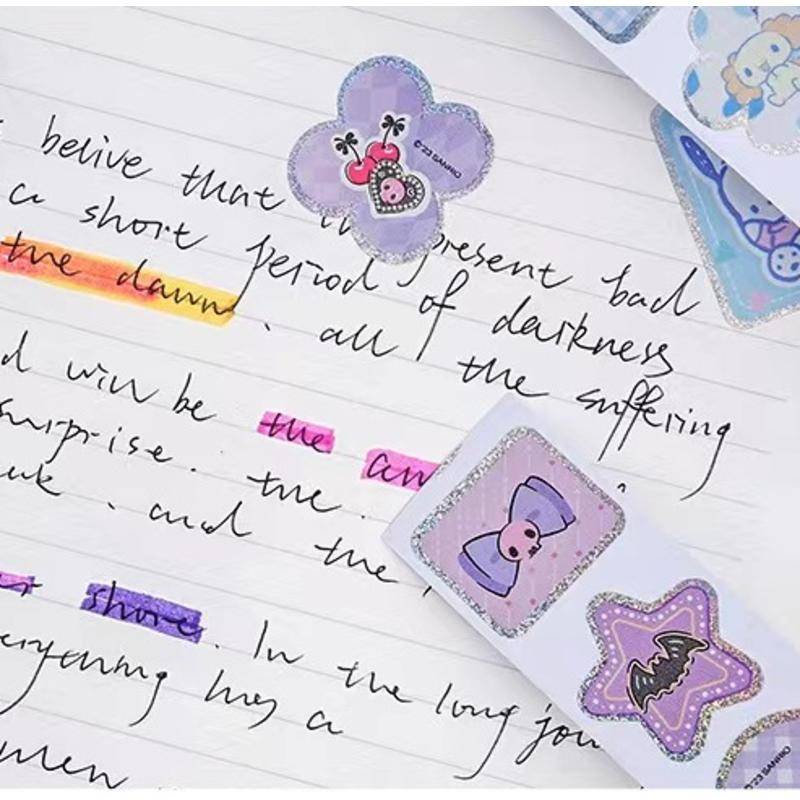 belive that in present bad
a short period of darkness
the dawn, all the suffering
d will be the
surprise. the
and the
shore. In the long jou
everything has a
men
©'23 SANRIO
SANRIO